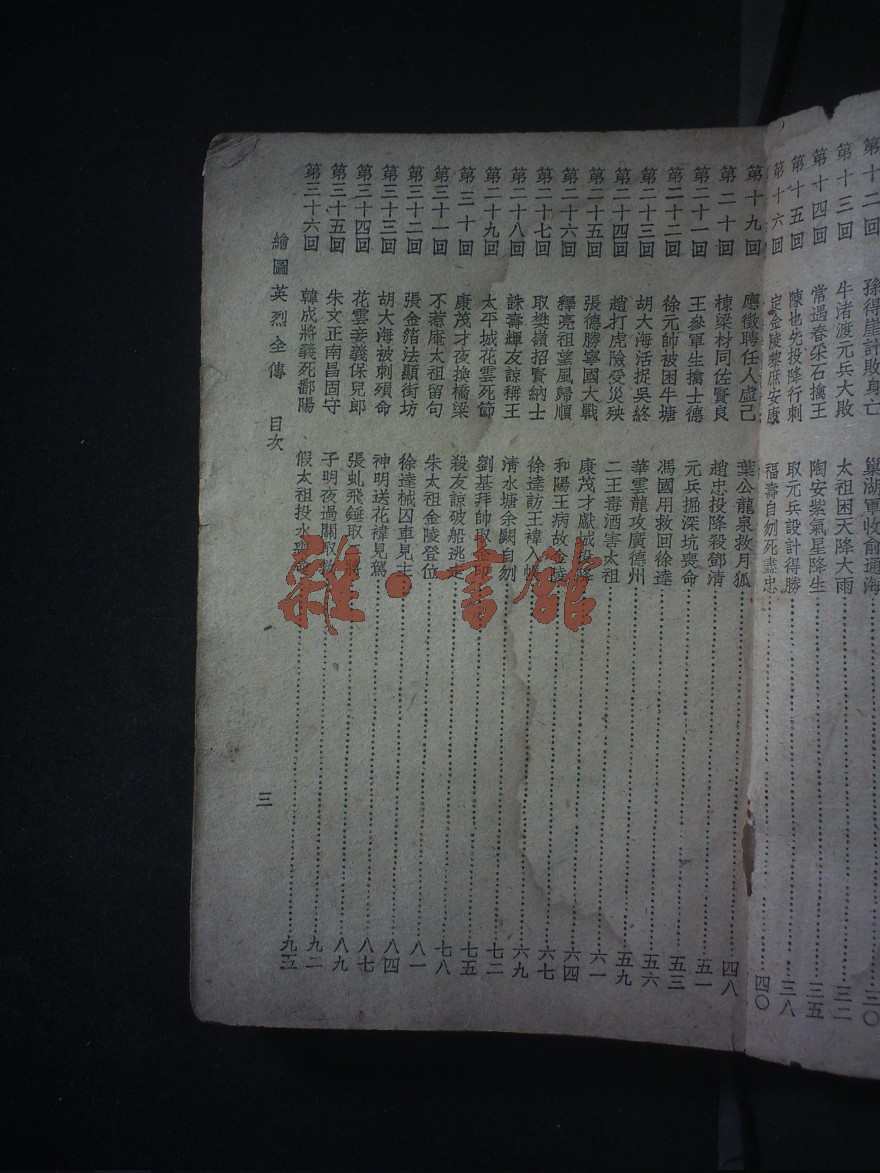 第十二回 孫得崖計敗身亡 巢湖軍收俞通海 三〇
第十三回 牛渚渡元兵大敗 太祖困天降大雨 三二
第十四回 常遇春采石擒王 陶安紫氣星降生 三五
第十五回 陳也先投降行刺 取元兵設計得勝 三八
第十六回 定金陵黎庶安康 福壽自刎死盡忠 四〇
第十九回 應徵聘任人虛己 葉公龍泉救月狐
第二十回 棟梁材同佐賢良 趙忠投降殺鄧清 四八
第二十一回 王參軍生擒士德 元兵掘深坑喪命 五一
第二十二回 徐元帥被困牛塘 馮國用救回徐達 五三
第二十三回 胡大海活捉吳終 華雲龍攻廣德州 五六
第二十四回 趙打虎險受災殃 二王毒酒害太祖 五九
第二十五回 張德勝寧國大戰 康茂才獻城投降 六一
第二十六回 釋亮祖望風歸順 和陽王病故金陵 六四
第二十七回 取樊嶺招賢納士 徐達訪王禕入帳 六七
第二十八回 誅壽輝友諒稱王 清水塘余闕自刎 六九
第二十九回 太平城花雲死節 劉基拜帥取金印 七二
第三十回 康茂才夜換橋梁 殺友諒破船逃走 七五
第三十一回 不惹庵太祖留句 朱太祖金陵登位 七八
第三十二回 張金箔法顯街坊 徐達械囚車見主 八一
第三十三回 胡大海被刺殞命 神明送花褘見駕 八四
第三十四回 花雲妾義保兒郎 張虬飛錘取 八七
第三十五回 朱文正南昌固守 子明夜過關取救 八九
第三十六回 韓成將義死鄱陽 假太祖投水喪命 九二
九五
繪圖英烈全傳 目次 三
雜·書館